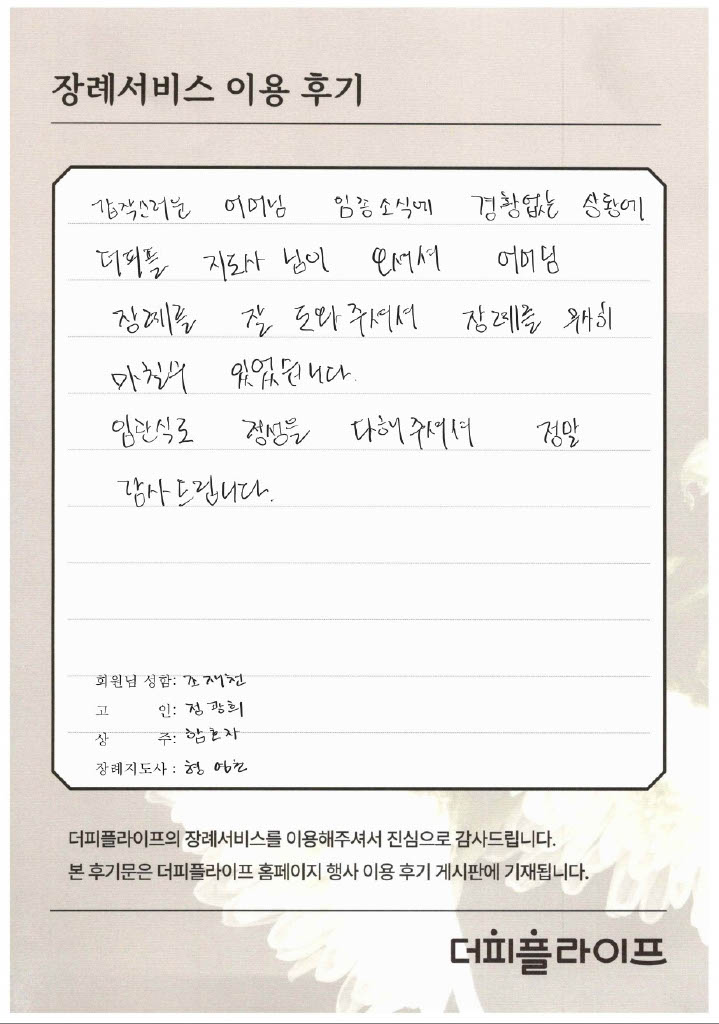 장례서비스 이용 후기
갑작스러운 어머님 임종소식에 경황없는 상황에
더피플 지도사 님이 오셔서 어머님
장례를 잘 도와주셔서 장례를 무사히
마칠수 있었습니다.
입관식도 정성을 다해주셔서 정말
감사드립니다.
회원님 성함: 조재천
고 인: 정광희
상 주:
장례지도사 : 형
더피플라이프의 장례서비스를 이용해주셔서 진심으로 감사드립니다.
본 후기문은 더피플라이프 홈페이지 행사 이용 후기 게시판에 기재됩니다.
더피플라이프